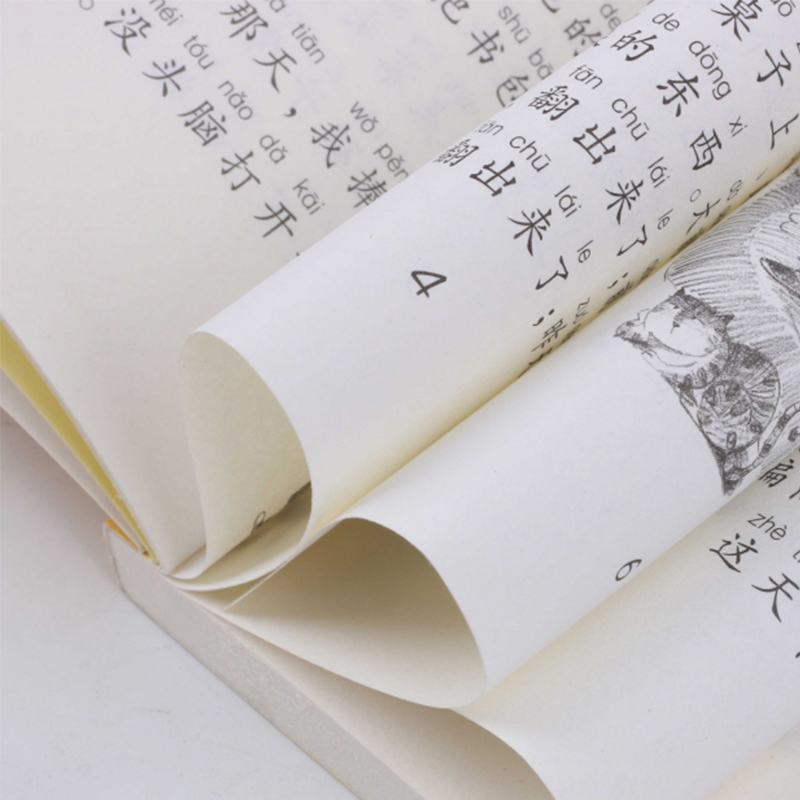 de
的
shū
把书包
tiān wǒ
那天，我捧
tóu nǎo dǎ kāi
没头脑打开
桌子上
de dōng xi
的东西。大
fān chū lái le
翻出来了；
chū lái le
翻出来了；昨
4
6
扁
zhè
这天